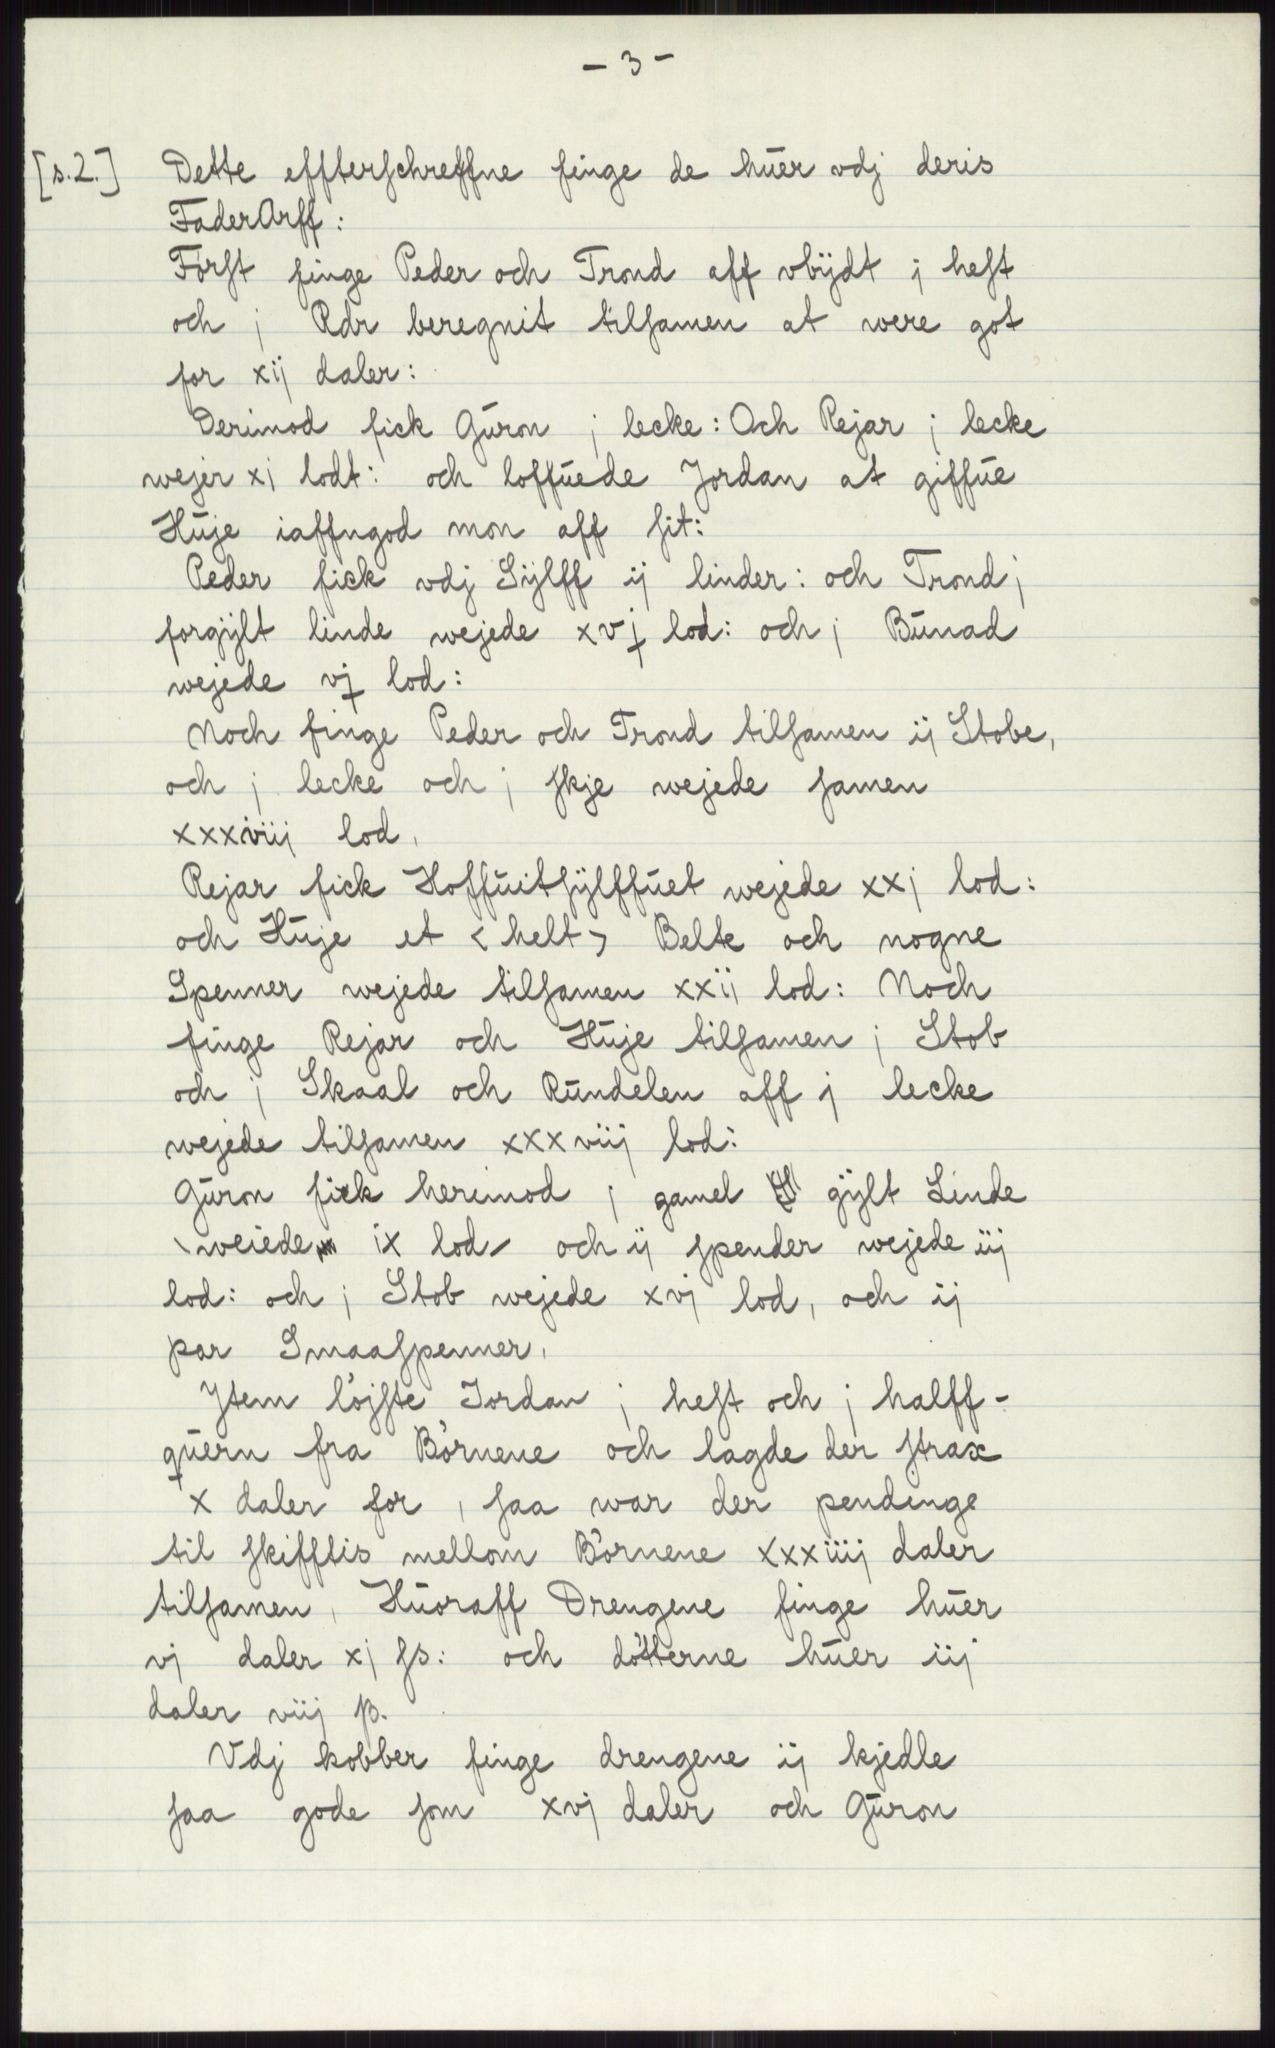 - 3 -
[s.2.] Dette effterschreffne finge de huer vdj deris
FaderArff:
Først finge Peder och Trond aff vbÿdt j hest
och j Rdr beregnit tilsamen at were got
for xij daler:
Derimod fick Guron j lecke: Och Rejar j lecke
wejer xj lodt: och loffuede Jordan at giffue
Huje iaffngod mon aff sit:
Peder fick vdj Sÿlff ij linder: och Trond j
forgÿlt linde wejede xvj lod: och j Bunad
wejede vj lod:
Noch finge Peder och Trond tilsamen ij Stobe,
och j lecke och j skje wejede samen
xxxviij lod,
Rejar fick Hoffuitsÿlffuet wejede xxj lod:
och Huje et <helt> Belte och nogne
Spenner wejede tilsamen xxij lod: Noch
finge Rejar och Huje tilsamen j Stob
och j Skaal och Rundelen aff j lecke
wejede tilsamen xxxviij lod:
Guron fick herimod j gamel gÿlt Linde
\weiede ix lod/ och ij spender wejede iij
lod: och j Stob wejede xvj lod, och ij
par Smaaspenner,
Jtem løjste Jordan j hest och j halff-
quern fra Børnene och lagde der strax
x daler for, saa war der pendinge
til skifftis mellom Børnene xxxiiij daler
tilsamen, Huoraff Drengene finge huer
vj daler xj ss: och døtterne huer iij
daler viij β.
Vdj kobber finge drengene ij kjedle
saa gode som xvj daler och Guron